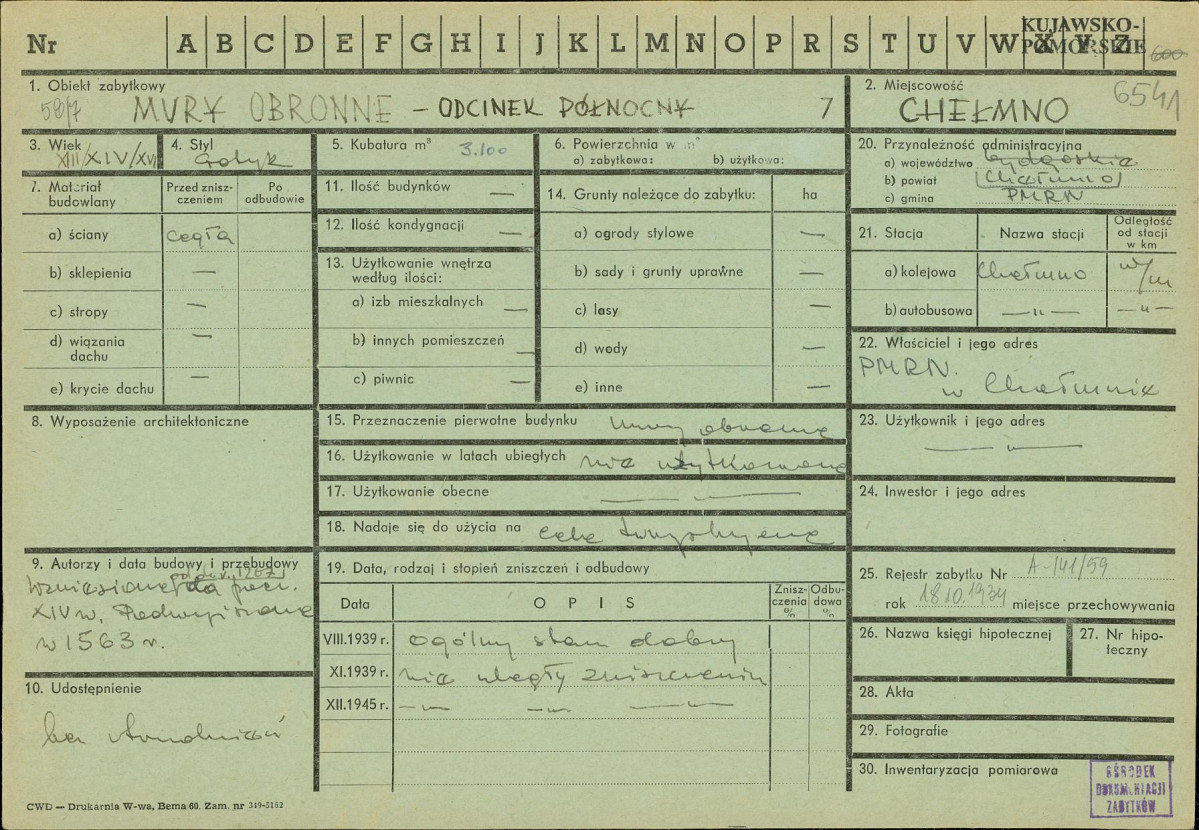 Nr A B C D E F G H I J K L M N O P R S T U V W X Y Z
KUJAWSKO-
POMORSKIE
600
1. Obiekt zabytkowy
MURY OBRONNE – ODCINEK PÓŁNOCNY 7
2. Miejscowość
CHEŁMNO
6541
3. Wiek
XIII/XIV/XVI
4. Styl
Gotyk
5. Kubatura m³ 3.100
6. Powierzchnia w m²
a) zabytkowa: b) użytkowa:
20. Przynależność administracyjna
a) województwo bydgoskie
b) powiat Chełmno
c) gmina PMRN
7. Materiał budowlany
Przed znisz-
czeniem
Po
odbudowie
a) ściany cegła
b) sklepienia —
c) stropy —
d) wiązania
dachu —
e) krycie dachu —
11. Ilość budynków —
12. Ilość kondygnacji —
13. Użytkowanie wnętrza
według ilości:
a) izb mieszkalnych —
b) innych pomieszczeń —
c) piwnic —
14. Grunty należące do zabytku: ha
a) ogrody stylowe —
b) sady i grunty uprawne —
c) lasy —
d) wody —
e) inne —
21. Stacja
Nazwa stacji
Odległość
od stacji
w km
a) kolejowa Chełmno w/m
b) autobusowa —"— —"—
22. Właściciel i jego adres
PMRN.
w Chełmnie
8. Wyposażenie architektoniczne
15. Przeznaczenie pierwotne budynku mury obronne
16. Użytkowanie w latach ubiegłych nie użytkowane
17. Użytkowanie obecne —"—
18. Nadaje się do użycia na cele turystyczne
23. Użytkownik i jego adres
—"—
24. Inwestor i jego adres
9. Autorzy i data budowy i przebudowy
wzniesione do pocz.
XIV w. Podwyższone
w 1563 r.
10. Udostępnienie
bez trudności
19. Data, rodzaj i stopień zniszczeń i odbudowy
Data
O P I S
Znisz-
czenia
%
Odbu-
dowa
%
VIII.1939 r. ogólny stan dobry
XI.1939 r. nie uległy zniszczeniu
XII.1945 r. —"— —"— —"—
25. Rejestr zabytku Nr A-141/59
rok 18.10.1934 miejsce przechowywania
26. Nazwa księgi hipotecznej
27. Nr hipo-
teczny
28. Akta
29. Fotografie
30. Inwentaryzacja pomiarowa
OŚRODEK
DOKUMENTACJI
ZABYTKÓW
CWD — Drukarnia W-wa, Bema 60. Zam. nr 349-5162